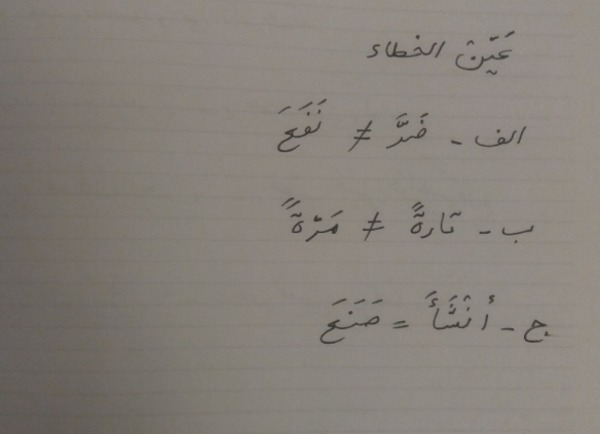 عَيِّن الخطاء
الف - ضَرَّ ≠ نَفَعَ
ب - تارةً ≠ مَرّةً
ج - أنْشَأَ = صَنَعَ